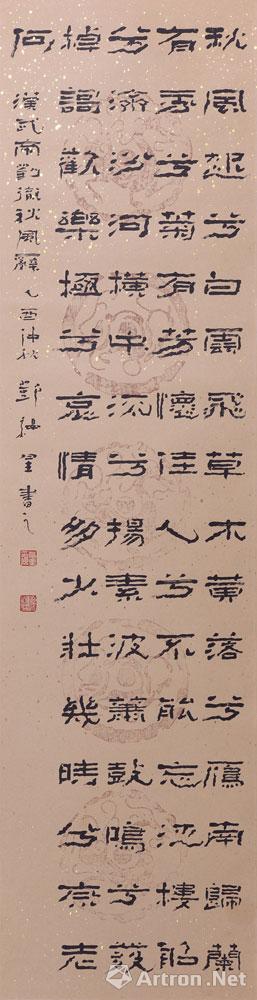 秋風起兮白雲飛草木黃落兮鴈南歸蘭
有秀兮菊有芳懷佳人兮不能忘泛樓船
兮濟汾河橫中流兮揚素波簫鼓鳴兮發
棹謌歡樂極兮哀情多少壯幾時兮奈老
何
漢武帝劉徹秋風辭 乙酉仲秋 鄧 星書之
Artron.Net
雅昌艺术网